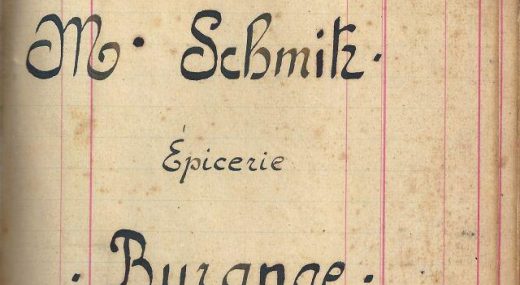 M. Schmitz.
Épicerie
. Burange.